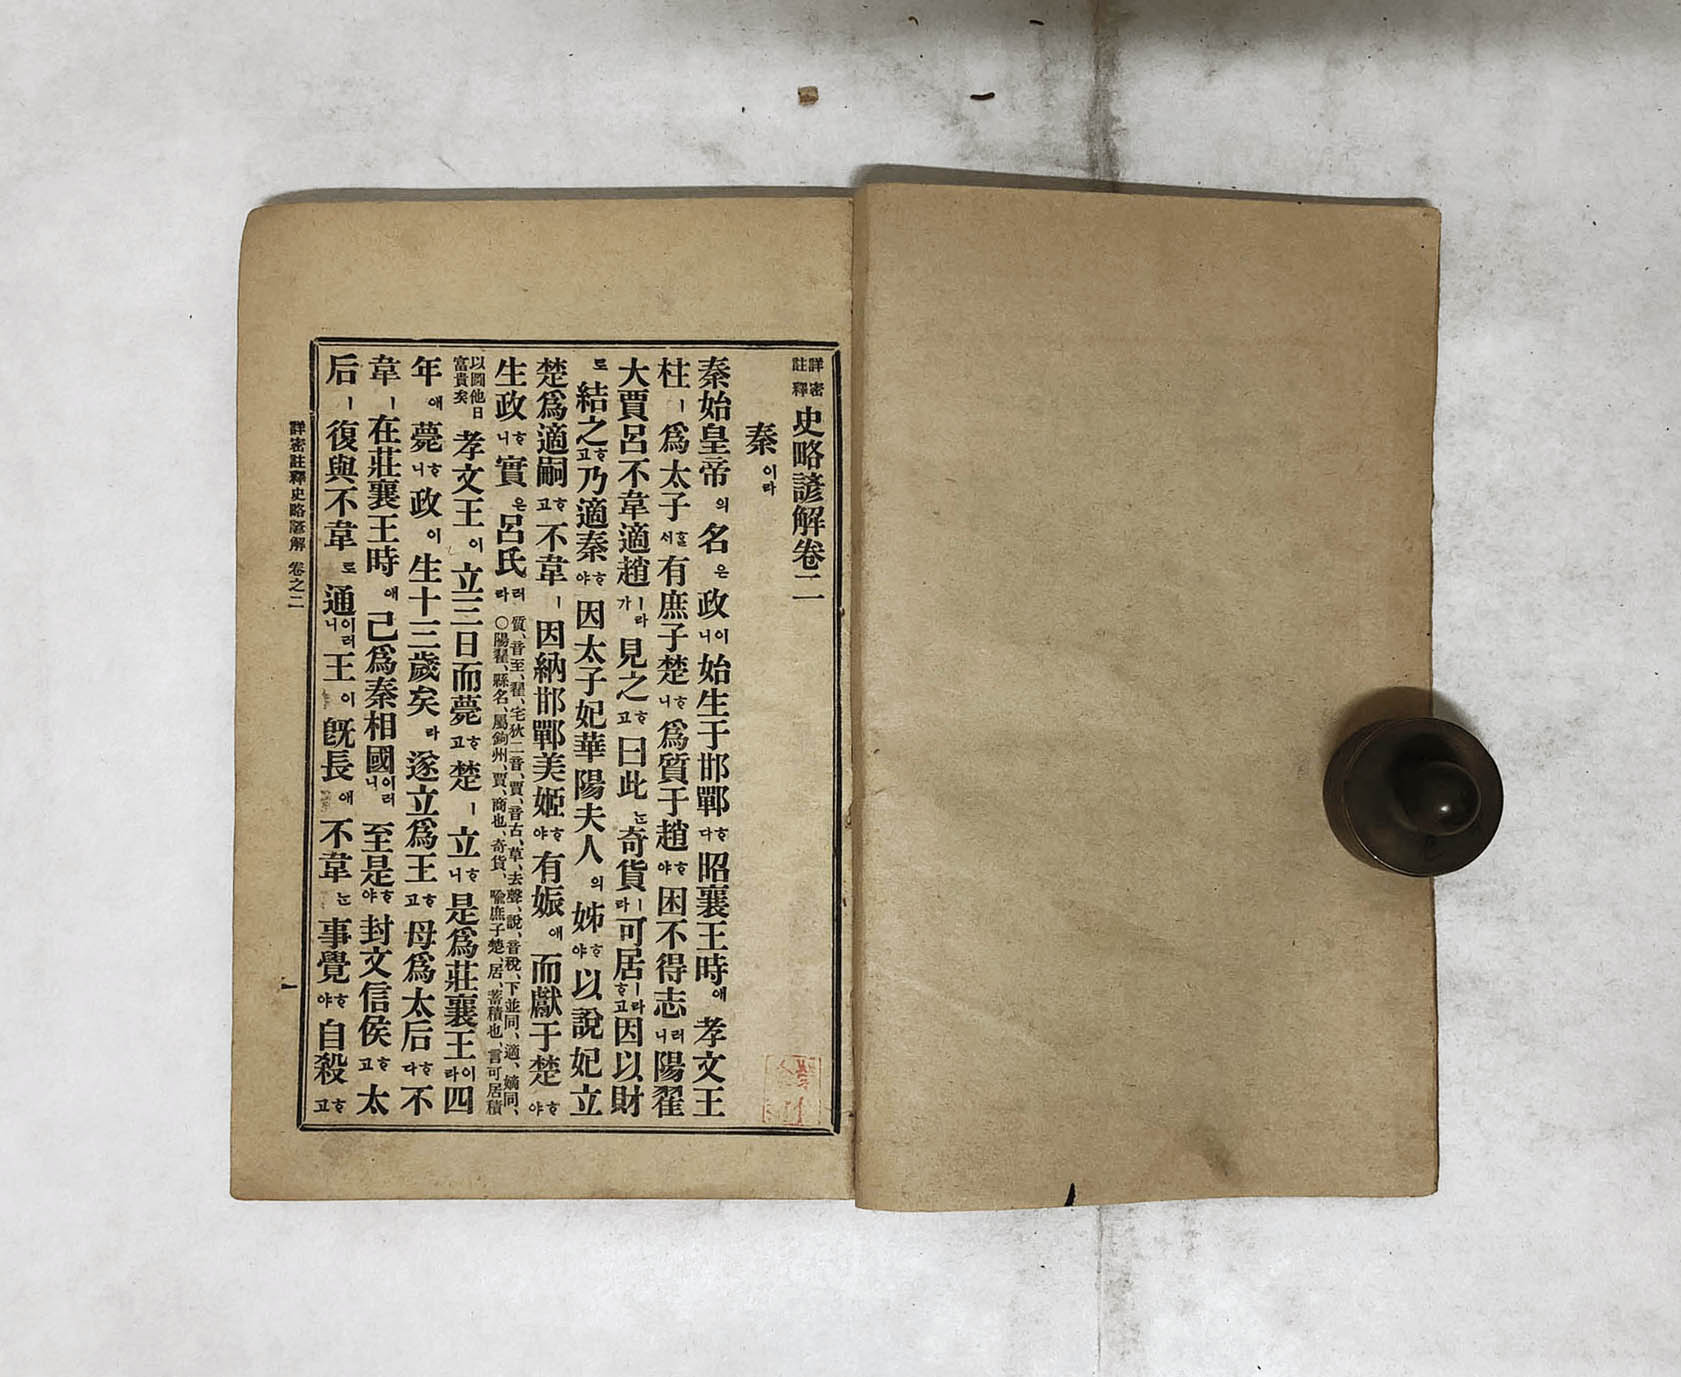 詳密註釋 史略諺解卷二
秦이라
秦始皇帝의名은政이니始生于邯鄲하다昭襄王時애孝文王
柱ㅣ爲太子하얏서有庶子楚하니爲質于趙하야困不得志러니陽翟
大賈呂不韋適趙ㅣ라가見之하고曰此는奇貨ㅣ라可居ㅣ라하고因以財
로結之하고乃適秦하야因太子妃華陽夫人의姊하야以說妃立
楚爲適嗣하고不韋ㅣ因納邯鄲美姬하야有娠애而獻于楚하야
生政하니實은呂氏러라 質、音至、翟、宅狄二音、賈、音古、草、去聲、說、音稅、下並同、適、嫡同、
○陽翟、縣名、屬鉤州、賈、商也、奇貨、喩庶子楚、居、蓄積也、言可居積
以圖他日
富貴矣 孝文王이立三日而薨하고楚ㅣ立하니是爲莊襄王이라四
年애薨하니政이生十三歲矣라遂立爲王하고母爲太后하다不
韋ㅣ在莊襄王時애已爲秦相國이러니至是하야封文信侯하고太
后ㅣ復與不韋로通이러니王이旣長애不韋는事覺하야自殺하고
詳密註釋史略諺解 卷之二
一